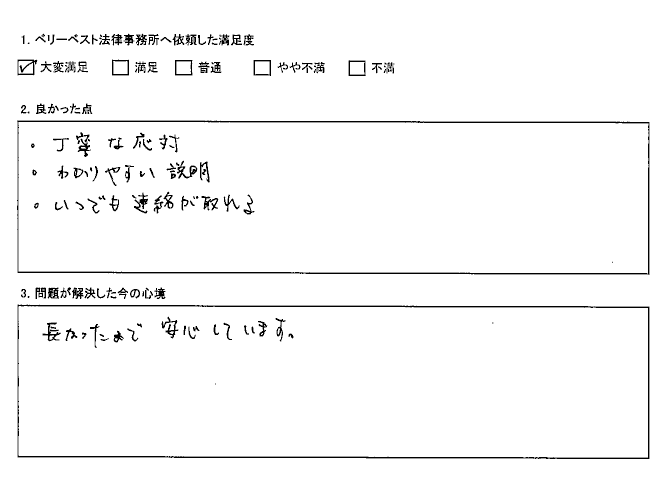 1. ベリーベスト法律事務所へ依頼した満足度
☑大変満足 □満足 □普通 □やや不満 □不満
2. 良かった点
。丁寧な応対
。わかりやすい説明
。いつでも連絡が取れる
3. 問題が解決した今の心境
長かったので安心しています。